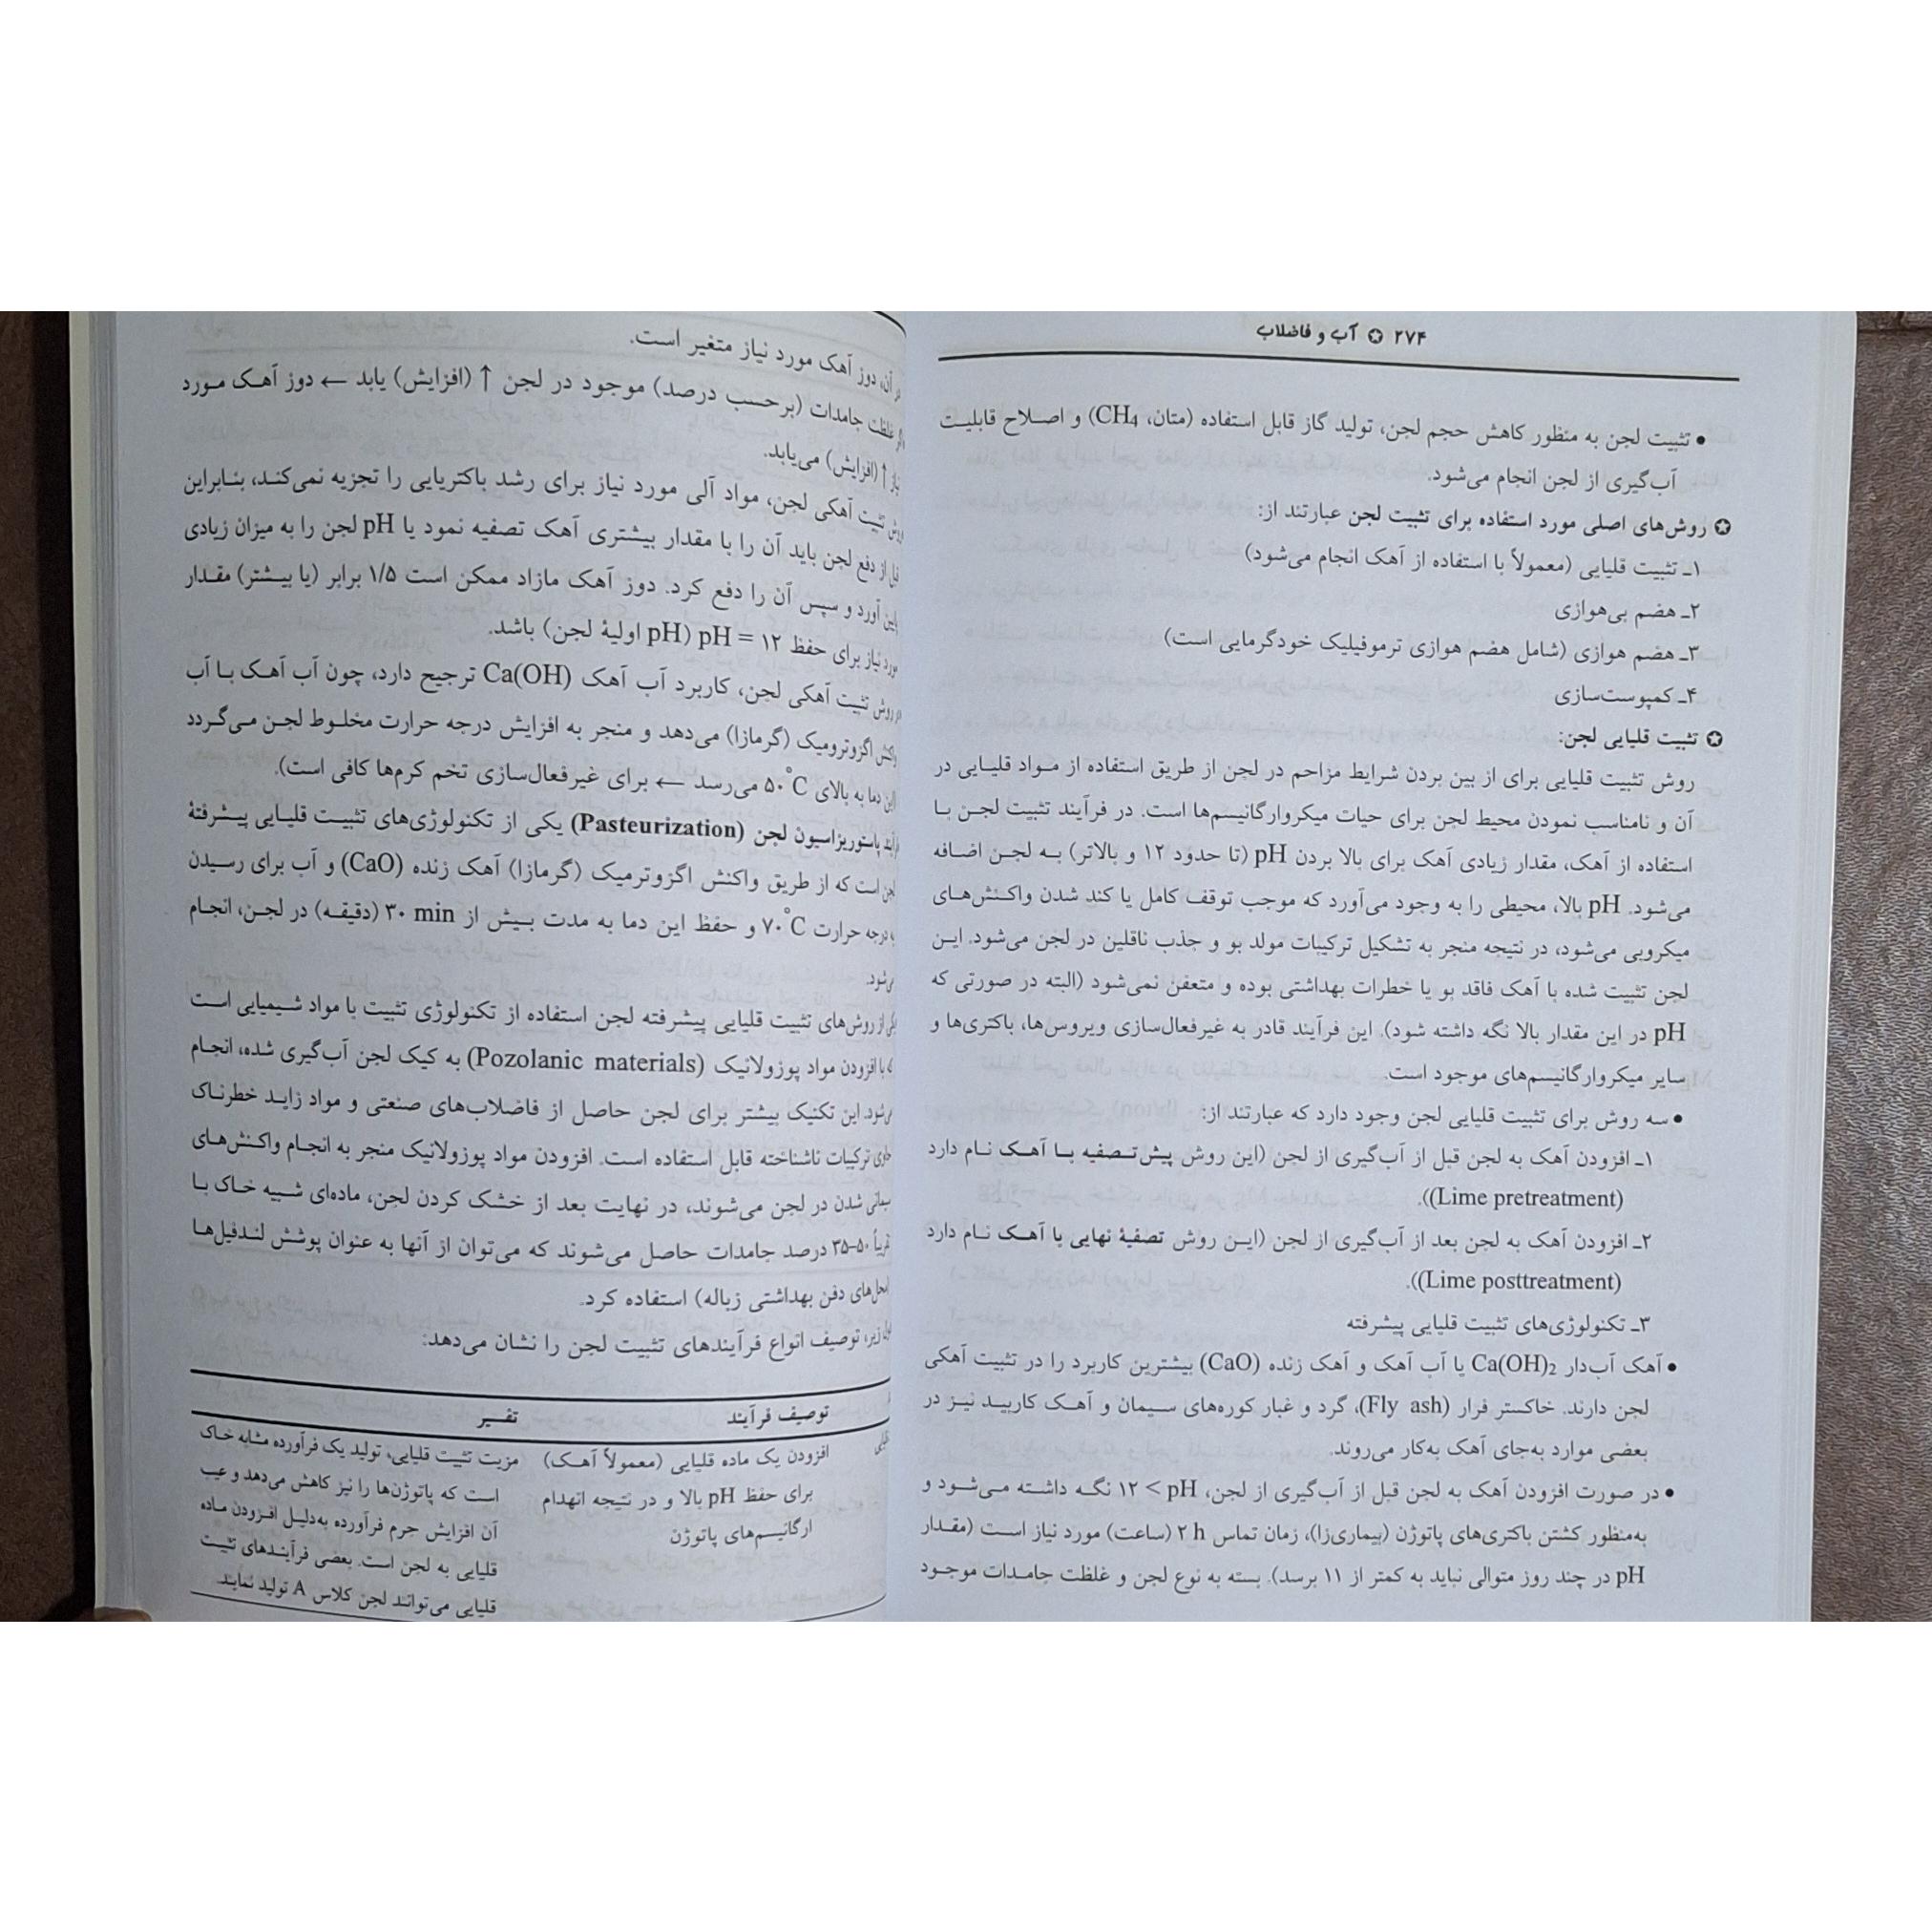 ۲۷۴ ✪ آب و فاضلاب
• تثبیت لجن به منظور کاهش حجم لجن، تولید گاز قابل استفاده (متان، CH4) و اصلاح قابلیت
آب‌گیری از لجن انجام می‌شود.
✪ روش‌های اصلی مورد استفاده برای تثبیت لجن عبارتند از:
۱ـ تثبیت قلیایی (معمولاً با استفاده از آهک انجام می‌شود)
۲ـ هضم بی‌هوازی
۳ـ هضم هوازی (شامل هضم هوازی ترموفیلیک خودگرمایی است)
۴ـ کمپوست‌سازی
✪ تثبیت قلیایی لجن:
روش تثبیت قلیایی برای از بین بردن شرایط مزاحم در لجن از طریق استفاده از مواد قلیایی در
آن و نامناسب نمودن محیط لجن برای حیات میکروارگانیسم‌ها است. در فرآیند تثبیت لجن با
استفاده از آهک، مقدار زیادی آهک برای بالا بردن pH (تا حدود ۱۲ و بالاتر) به لجن اضافه
می‌شود. pH بالا، محیطی را به وجود می‌آورد که موجب توقف کامل یا کند شدن واکنش‌های
میکروبی می‌شود، در نتیجه منجر به تشکیل ترکیبات مولد بو و جذب ناقلین در لجن می‌شود. این
لجن تثبیت شده با آهک فاقد بو یا خطرات بهداشتی بوده و متعفن نمی‌شود (البته در صورتی که
pH در این مقدار بالا نگه داشته شود). این فرآیند قادر به غیرفعال‌سازی ویروس‌ها، باکتری‌ها و
سایر میکروارگانیسم‌های موجود است.
• سه روش برای تثبیت قلیایی لجن وجود دارد که عبارتند از:
۱ـ افزودن آهک به لجن قبل از آب‌گیری از لجن (این روش پیش‌تصفیه با آهک نام دارد
(Lime pretreatment)).
۲ـ افزودن آهک به لجن بعد از آب‌گیری از لجن (این روش تصفیهٔ نهایی با آهک نام دارد
(Lime posttreatment)).
۳ـ تکنولوژی‌های تثبیت قلیایی پیشرفته
• آهک آب‌دار Ca(OH)2 یا آب آهک و آهک زنده (CaO) بیشترین کاربرد را در تثبیت آهکی
لجن دارند. خاکستر فرار (Fly ash)، گرد و غبار کوره‌های سیمان و آهک کاربید نیز در
بعضی موارد به‌جای آهک به‌کار می‌روند.
• در صورت افزودن آهک به لجن قبل از آب‌گیری از لجن، pH > ۱۲ نگه داشته می‌شود و
به‌منظور کشتن باکتری‌های پاتوژن (بیماری‌زا)، زمان تماس ۲ h (ساعت) مورد نیاز است (مقدار
pH در چند روز متوالی نباید به کمتر از ۱۱ برسد). بسته به نوع لجن و غلظت جامدات موجود
آن، دوز آهک مورد نیاز متغیر است.
غلظت جامدات (برحسب درصد) موجود در لجن ↑ (افزایش) یابد ← دوز آهک مورد
نیاز ↑ (افزایش) می‌یابد.
روش تثبیت آهکی لجن، مواد آلی مورد نیاز برای رشد باکتریایی را تجزیه نمی‌کند، بنابراین
قبل از دفع لجن باید آن را با مقدار بیشتری آهک تصفیه نمود یا pH لجن را به میزان زیادی
پایین آورد و سپس آن را دفع کرد. دوز آهک مازاد ممکن است ۱/۵ برابر (یا بیشتر) مقدار
مورد نیاز برای حفظ pH = ۱۲ (pH اولیهٔ لجن) باشد.
در روش تثبیت آهکی لجن، کاربرد آب آهک Ca(OH) ترجیح دارد، چون آب آهک با آب
واکنش اگزوترومیک (گرمازا) می‌دهد و منجر به افزایش درجه حرارت مخلوط لجن می‌گردد
(این دما به بالای ۵۰°C می‌رسد ← برای غیرفعال‌سازی تخم کرم‌ها کافی است).
فرآیند پاستوریزاسیون لجن (Pasteurization) یکی از تکنولوژی‌های تثبیت قلیایی پیشرفتهٔ
لجن است که از طریق واکنش اگزوترمیک (گرمازا) آهک زنده (CaO) و آب برای رسیدن
به درجه حرارت ۷۰°C و حفظ این دما به مدت بیش از ۳۰ min (دقیقه) در لجن، انجام
می‌شود.
یکی از روش‌های تثبیت قلیایی پیشرفته لجن استفاده از تکنولوژی تثبیت با مواد شیمیایی است
که با افزودن مواد پوزولانیک (Pozolanic materials) به کیک لجن آب‌گیری شده، انجام
می‌شود. این تکنیک بیشتر برای لجن حاصل از فاضلاب‌های صنعتی و مواد زاید خطرناک
حاوی ترکیبات ناشناخته قابل استفاده است. افزودن مواد پوزولانیک منجر به انجام واکنش‌های
سیمانی شدن در لجن می‌شوند، در نهایت بعد از خشک کردن لجن، ماده‌ای شبیه خاک با
تقریباً ۵۰-۳۵ درصد جامدات حاصل می‌شوند که می‌توان از آنها به عنوان پوشش لندفیل‌ها
(محل‌های دفن بهداشتی زباله) استفاده کرد.
زیر، توصیف انواع فرآیندهای تثبیت لجن را نشان می‌دهد:
توصیف فرآیند تفسیر
افزودن یک ماده قلیایی (معمولاً آهک) مزیت تثبیت قلیایی، تولید یک فرآورده مشابه خاک
برای حفظ pH بالا و در نتیجه انهدام است که پاتوژن‌ها را نیز کاهش می‌دهد و عیب
ارگانیسم‌های پاتوژن آن افزایش جرم فرآورده به‌دلیل افزودن ماده
قلیایی به لجن است. بعضی فرآیندهای تثبیت
قلیایی می‌توانند لجن کلاس A تولید نمایند.